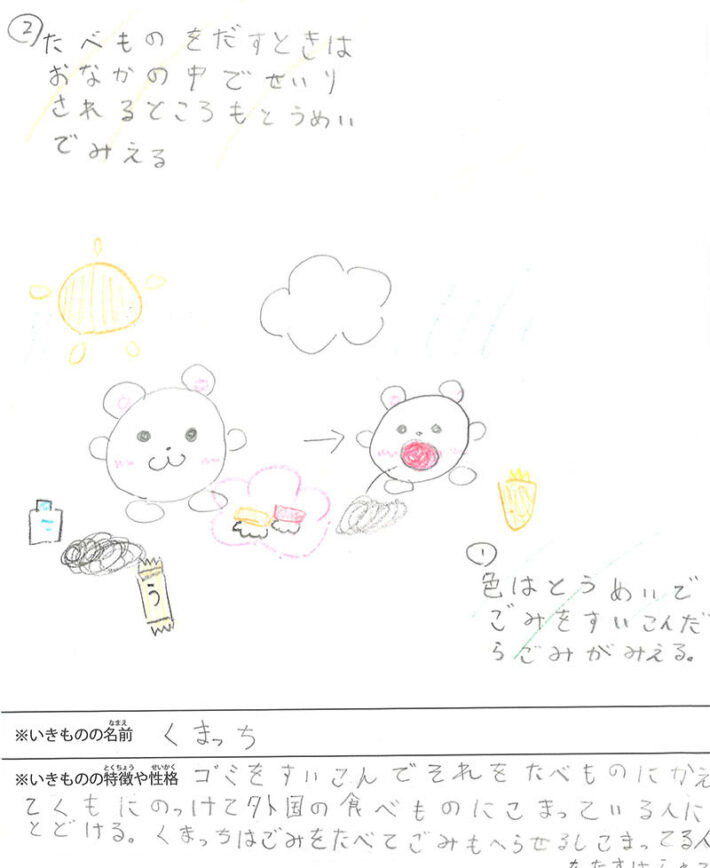 ② たべものをだすときは
おなかの中でせいり
されるところもとうめい
でみえる
う
①
色はとうめいで
ごみをすいこんだ
らごみがみえる。
※いきものの名前 くまっち
なまえ
※いきものの特徴や性格 ゴミをすいこんでそれをたべものにかえ
とくちょう せいかく
てくもにのっけて外国の食べものにこまっている人に
とどける。くまっちはごみをたべてごみもへらせるしこまってる人